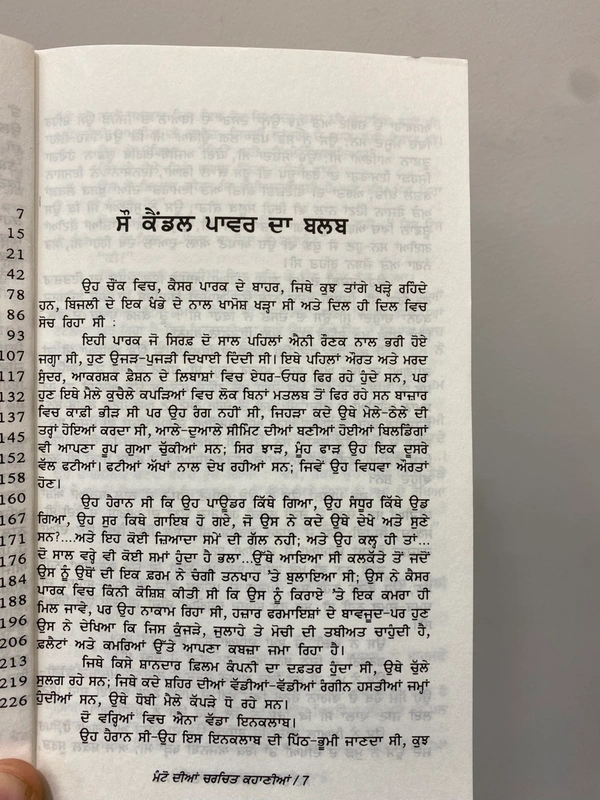 7
15
21
42
78
86
93
107
117
132
137
145
152
158
160
167
171
176
184
188
196
206
213
219
226
ਸੌ ਕੈਂਡਲ ਪਾਵਰ ਦਾ ਬਲਬ
ਉਹ ਚੌਂਕ ਵਿਚ, ਕੈਸਰ ਪਾਰਕ ਦੇ ਬਾਹਰ, ਜਿਥੇ ਕੁਝ ਤਾਂਗੇ ਖੜ੍ਹੇ ਰਹਿੰਦੇ
ਹਨ, ਬਿਜਲੀ ਦੇ ਇਕ ਖੰਭੇ ਦੇ ਨਾਲ ਖਾਮੋਸ਼ ਖੜ੍ਹਾ ਸੀ ਅਤੇ ਦਿਲ ਹੀ ਦਿਲ ਵਿਚ
ਸੋਚ ਰਿਹਾ ਸੀ :
ਇਹੀ ਪਾਰਕ ਜੋ ਸਿਰਫ਼ ਦੋ ਸਾਲ ਪਹਿਲਾਂ ਐਨੀ ਰੌਣਕ ਨਾਲ ਭਰੀ ਹੋਏ
ਜਗ੍ਹਾ ਸੀ, ਹੁਣ ਉਜੜ-ਪੁਜੜੀ ਦਿਖਾਈ ਦਿੰਦੀ ਸੀ। ਇਥੇ ਪਹਿਲਾਂ ਔਰਤ ਅਤੇ ਮਰਦ
ਸੁੰਦਰ, ਆਕਰਸ਼ਕ ਫ਼ੈਸ਼ਨ ਦੇ ਲਿਬਾਸ਼ਾਂ ਵਿਚ ਏਧਰ-ਓਧਰ ਫਿਰ ਰਹੇ ਹੁੰਦੇ ਸਨ, ਪਰ
ਹੁਣ ਇਥੇ ਮੈਲੇ ਕੁਚੈਲੇ ਕਪੜਿਆਂ ਵਿਚ ਲੋਕ ਬਿਨਾਂ ਮਤਲਬ ਤੋਂ ਫਿਰ ਰਹੇ ਸਨ ਬਾਜ਼ਾਰ
ਵਿਚ ਕਾਫ਼ੀ ਭੀੜ ਸੀ ਪਰ ਉਹ ਰੰਗ ਨਹੀਂ ਸੀ, ਜਿਹੜਾ ਕਦੇ ਉਥੇ ਮੇਲੇ-ਠੇਲੇ ਦੀ
ਤਰ੍ਹਾਂ ਹੋਇਆਂ ਕਰਦਾ ਸੀ, ਆਲੇ-ਦੁਆਲੇ ਸੀਮਿੰਟ ਦੀਆਂ ਬਣੀਆਂ ਹੋਈਆਂ ਬਿਲਡਿੰਗਾਂ
ਵੀ ਆਪਣਾ ਰੂਪ ਗੁਆ ਚੁੱਕੀਆਂ ਸਨ; ਸਿਰ ਝਾੜ, ਮੂੰਹ ਫਾੜ ਉਹ ਇਕ ਦੂਸਰੇ
ਵੱਲ ਫਟੀਆਂ। ਫਟੀਆਂ ਅੱਖਾਂ ਨਾਲ ਦੇਖ ਰਹੀਆਂ ਸਨ; ਜਿਵੇਂ ਉਹ ਵਿਧਵਾ ਔਰਤਾਂ
ਹੋਣ।
ਉਹ ਹੈਰਾਨ ਸੀ ਕਿ ਉਹ ਪਾਊਡਰ ਕਿੱਥੇ ਗਿਆ, ਉਹ ਸੰਧੂਰ ਕਿੱਥੇ ਉਡ
ਗਿਆ, ਉਹ ਸੁਰ ਕਿਥੇ ਗਾਇਬ ਹੋ ਗਏ, ਜੋ ਉਸ ਨੇ ਕਦੇ ਉਥੇ ਦੇਖੇ ਅਤੇ ਸੁਣੇ
ਸਨ?...ਅਤੇ ਇਹ ਕੋਈ ਜ਼ਿਆਦਾ ਸਮੇਂ ਦੀ ਗੱਲ ਨਹੀ; ਅਤੇ ਉਹ ਕਲ੍ਹ ਹੀ ਤਾਂ...
ਦੋ ਸਾਲ ਵਰ੍ਹੇ ਵੀ ਕੋਈ ਸਮਾਂ ਹੁੰਦਾ ਹੈ ਭਲਾ...ਉੱਥੇ ਆਇਆ ਸੀ ਕਲਕੱਤੇ ਤੋਂ ਜਦੋਂ
ਉਸ ਨੂੰ ਉਥੋਂ ਦੀ ਇਕ ਫ਼ਰਮ ਨੇ ਚੰਗੀ ਤਨਖਾਹ 'ਤੇ ਬੁਲਾਇਆ ਸੀ; ਉਸ ਨੇ ਕੈਸਰ
ਪਾਰਕ ਵਿਚ ਕਿੰਨੀ ਕੋਸ਼ਿਸ਼ ਕੀਤੀ ਸੀ ਕਿ ਉਸ ਨੂੰ ਕਿਰਾਏ 'ਤੇ ਇਕ ਕਮਰਾ ਹੀ
ਮਿਲ ਜਾਵੇ, ਪਰ ਉਹ ਨਾਕਾਮ ਰਿਹਾ ਸੀ, ਹਜ਼ਾਰ ਫਰਮਾਇਸ਼ਾਂ ਦੇ ਬਾਵਜੂਦ-ਪਰ ਹੁਣ
ਉਸ ਨੇ ਦੇਖਿਆ ਕਿ ਜਿਸ ਕੁੰਜੜੇ, ਜੁਲਾਹੇ ਤੇ ਮੋਚੀ ਦੀ ਤਬੀਅਤ ਚਾਹੁੰਦੀ ਹੈ,
ਫ਼ਲੈਟਾਂ ਅਤੇ ਕਮਰਿਆਂ ਉੱਤੇ ਆਪਣਾ ਕਬਜ਼ਾ ਜਮਾ ਰਿਹਾ ਹੈ।
ਜਿਥੇ ਕਿਸੇ ਸ਼ਾਨਦਾਰ ਫ਼ਿਲਮ ਕੰਪਨੀ ਦਾ ਦਫ਼ਤਰ ਹੁੰਦਾ ਸੀ, ਉਥੇ ਚੁੱਲੇ
ਸੁਲਗ ਰਹੇ ਸਨ; ਜਿਥੇ ਕਦੇ ਸ਼ਹਿਰ ਦੀਆਂ ਵੱਡੀਆਂ-ਵੱਡੀਆਂ ਰੰਗੀਨ ਹਸਤੀਆਂ ਜਮ੍ਹਾਂ
ਹੁੰਦੀਆਂ ਸਨ, ਉਥੇ ਧੋਬੀ ਮੈਲੇ ਕੱਪੜੇ ਧੋ ਰਹੇ ਸਨ।
ਦੋ ਵਰ੍ਹਿਆਂ ਵਿਚ ਐਨਾ ਵੱਡਾ ਇਨਕਲਾਬ।
ਉਹ ਹੈਰਾਨ ਸੀ-ਉਹ ਇਸ ਇਨਕਲਾਬ ਦੀ ਪਿੱਠ-ਭੂਮੀ ਜਾਣਦਾ ਸੀ, ਕੁਝ
ਮੰਟੋ ਦੀਆਂ ਚਰਚਿਤ ਕਹਾਣੀਆਂ / 7